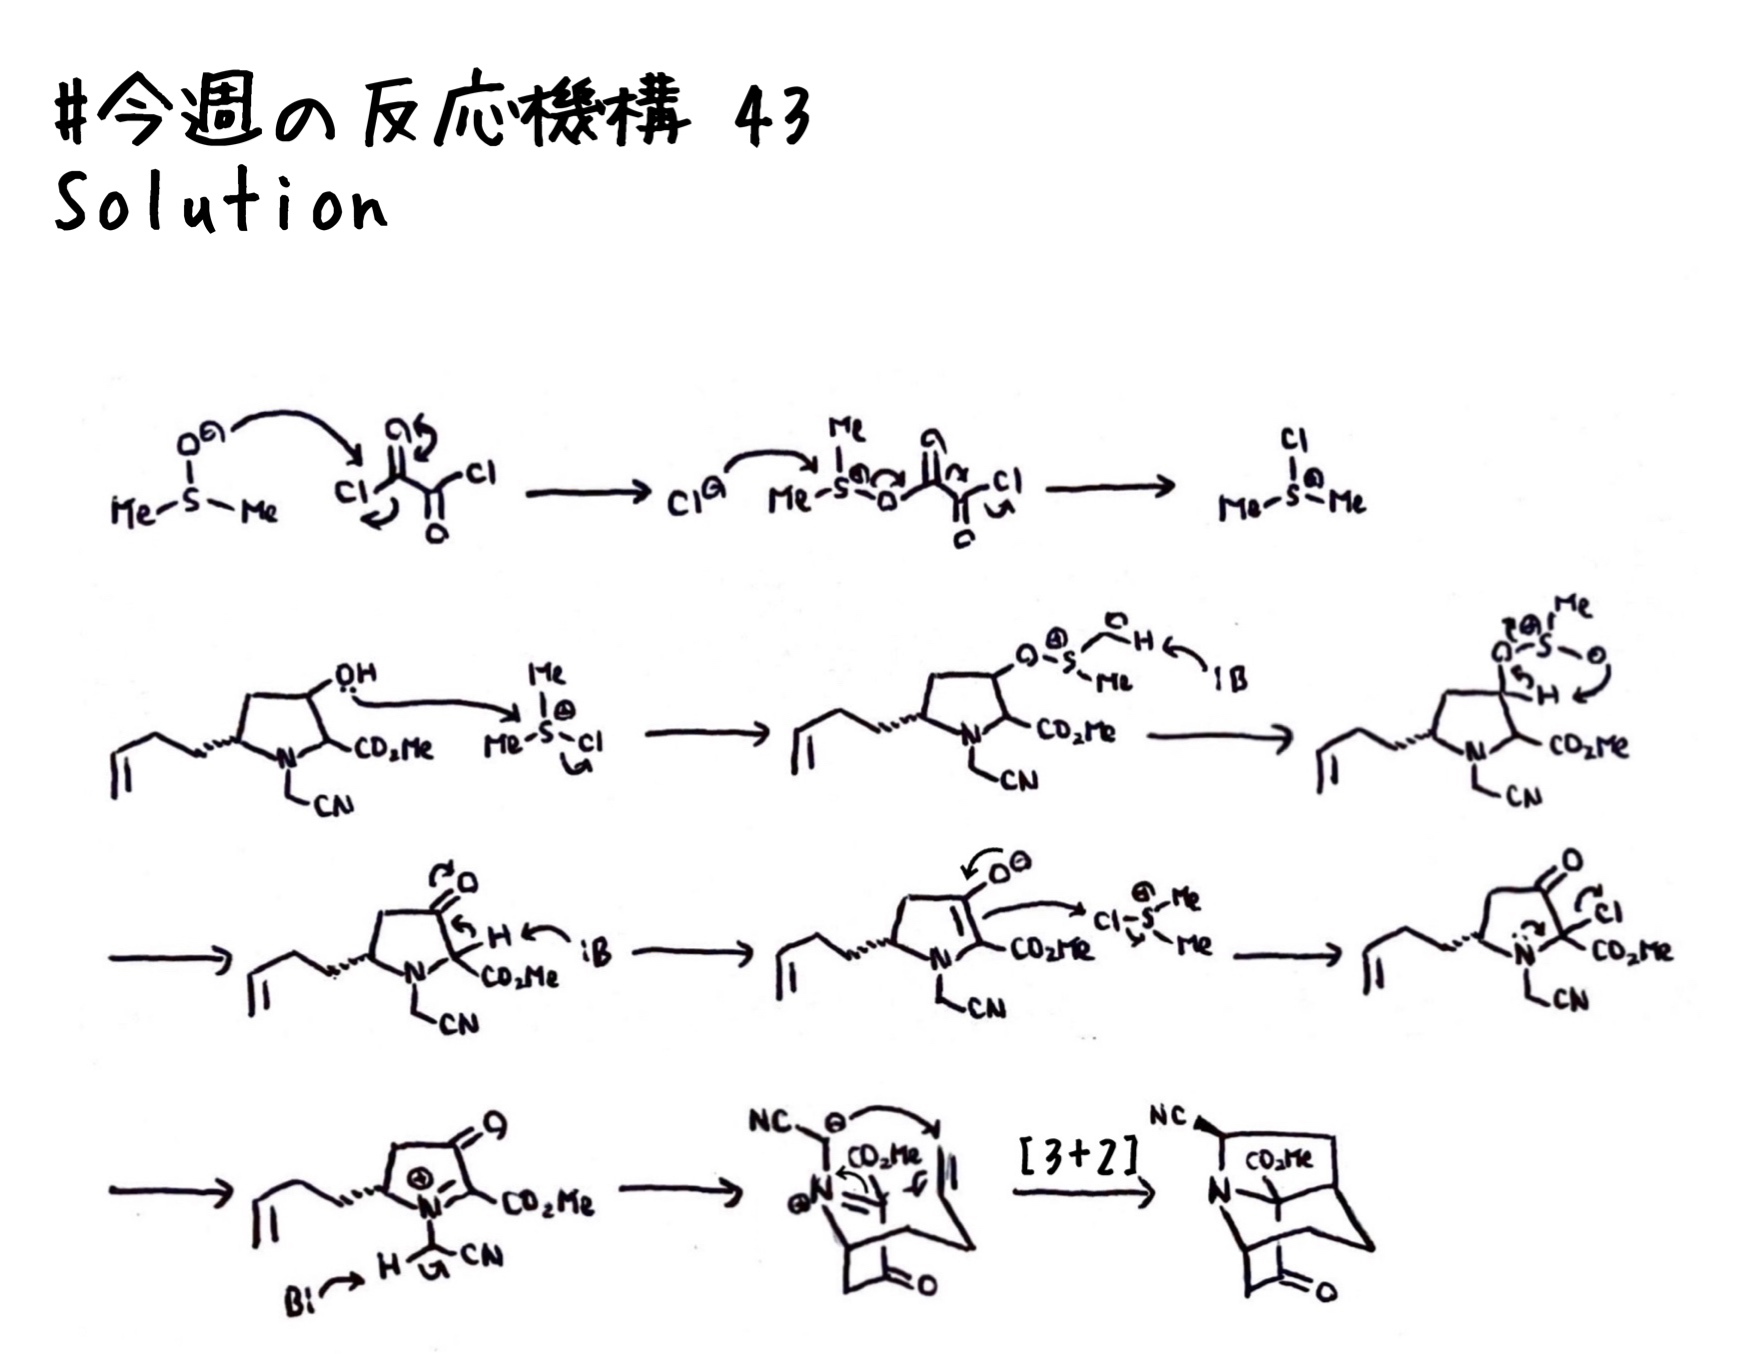 #今週の反応機構 43
Solution
O⊖ Me S Me Cl O Cl O
Cl⊖ Me Me S⊕ O O Cl O
Cl Me S⊕ Me
OH N CO₂Me CN Me Me S⊕ Cl
O S⊕ H Me N CO₂Me CN :B
O ⊕S Me ⊖ H N CO₂Me CN
O H :B N CO₂Me CN
O⊖ N CO₂Me CN Cl S⊕ Me Me
O Cl N CO₂Me CN
O ⊕ N CO₂Me H CN B:
NC ⊖ CO₂Me ⊕N O
[3+2]
NC CO₂Me N O